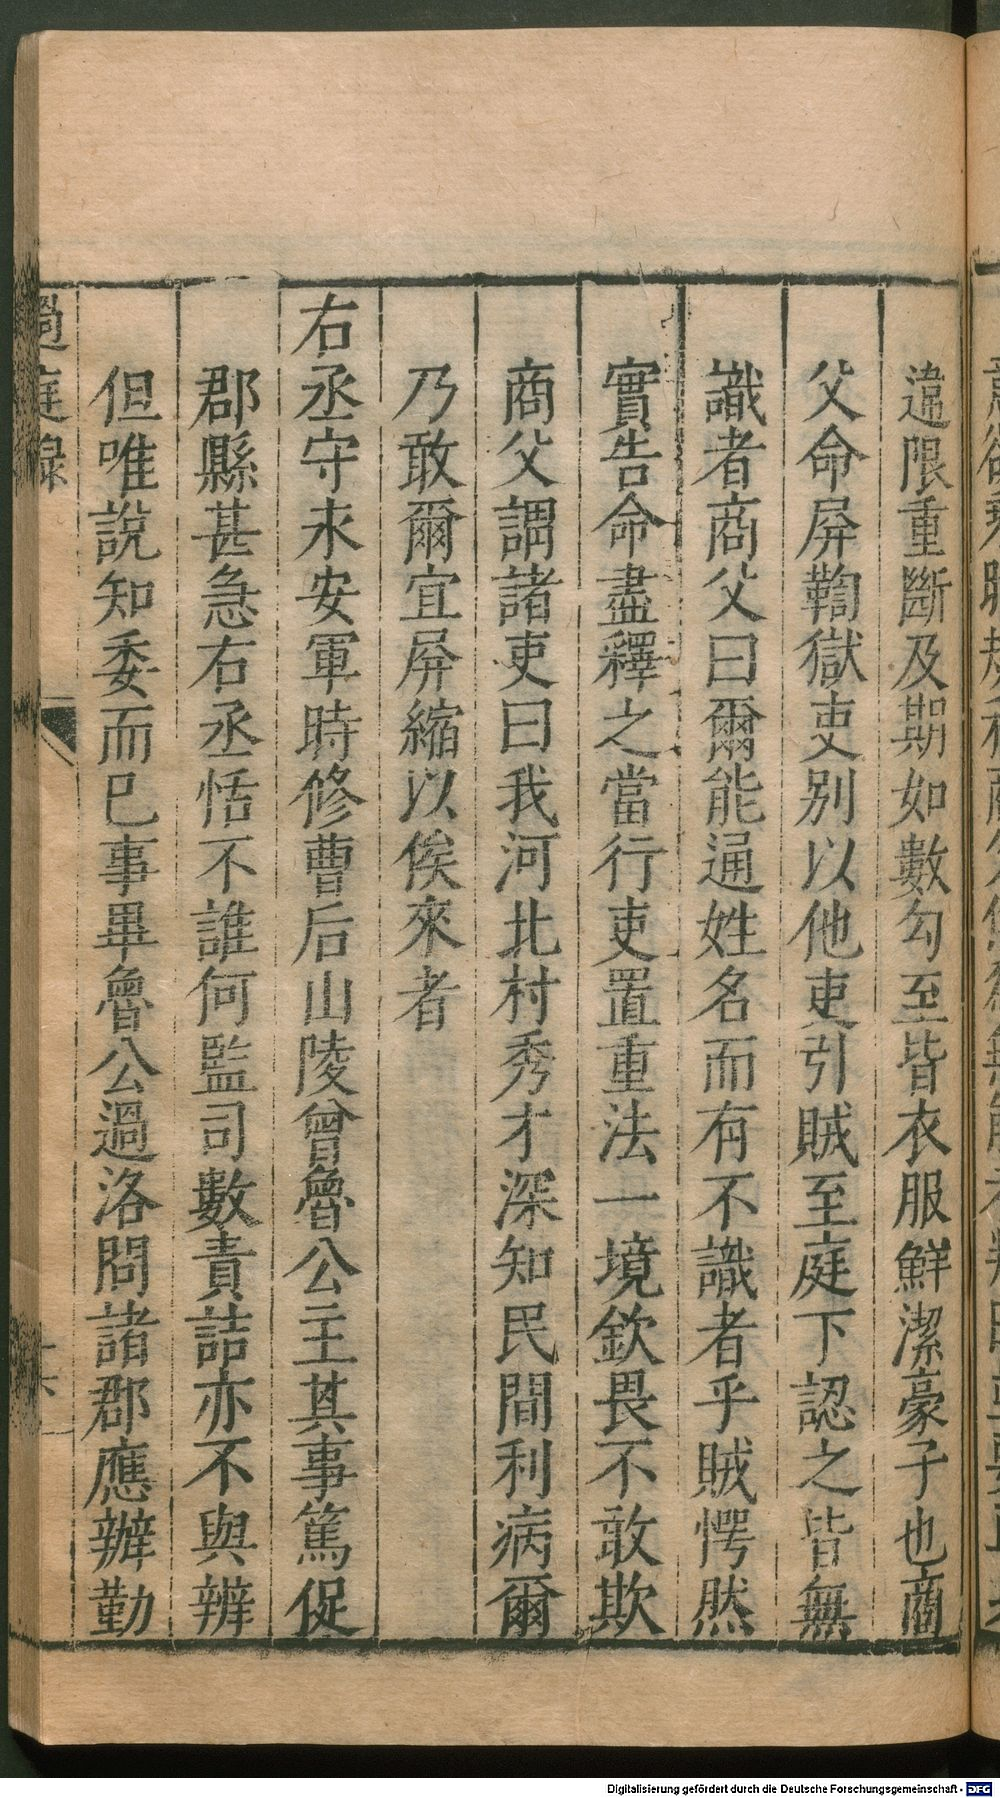 違限重斷及期如數勾至皆衣服鮮潔豪子也商
父命屏鞫獄吏別以他吏引賊至庭下認之皆無
識者商父曰爾能通姓名而有不識者乎賊愕然
實告命盡釋之當行吏置重法一境欽畏不敢欺
商父謂諸吏曰我河北村秀才深知民間利病爾
乃敢爾宜屏縮以俟來者
右丞守永安軍時修曹后山陵曾魯公主其事篤促
郡縣甚急右丞恬不誰何監司數責詰亦不與辨
但唯說知委而已事畢魯公過洛問諸郡應辦勤
過庭錄
Digitalisierung gefördert durch die Deutsche Forschungsgemeinschaft - DFG